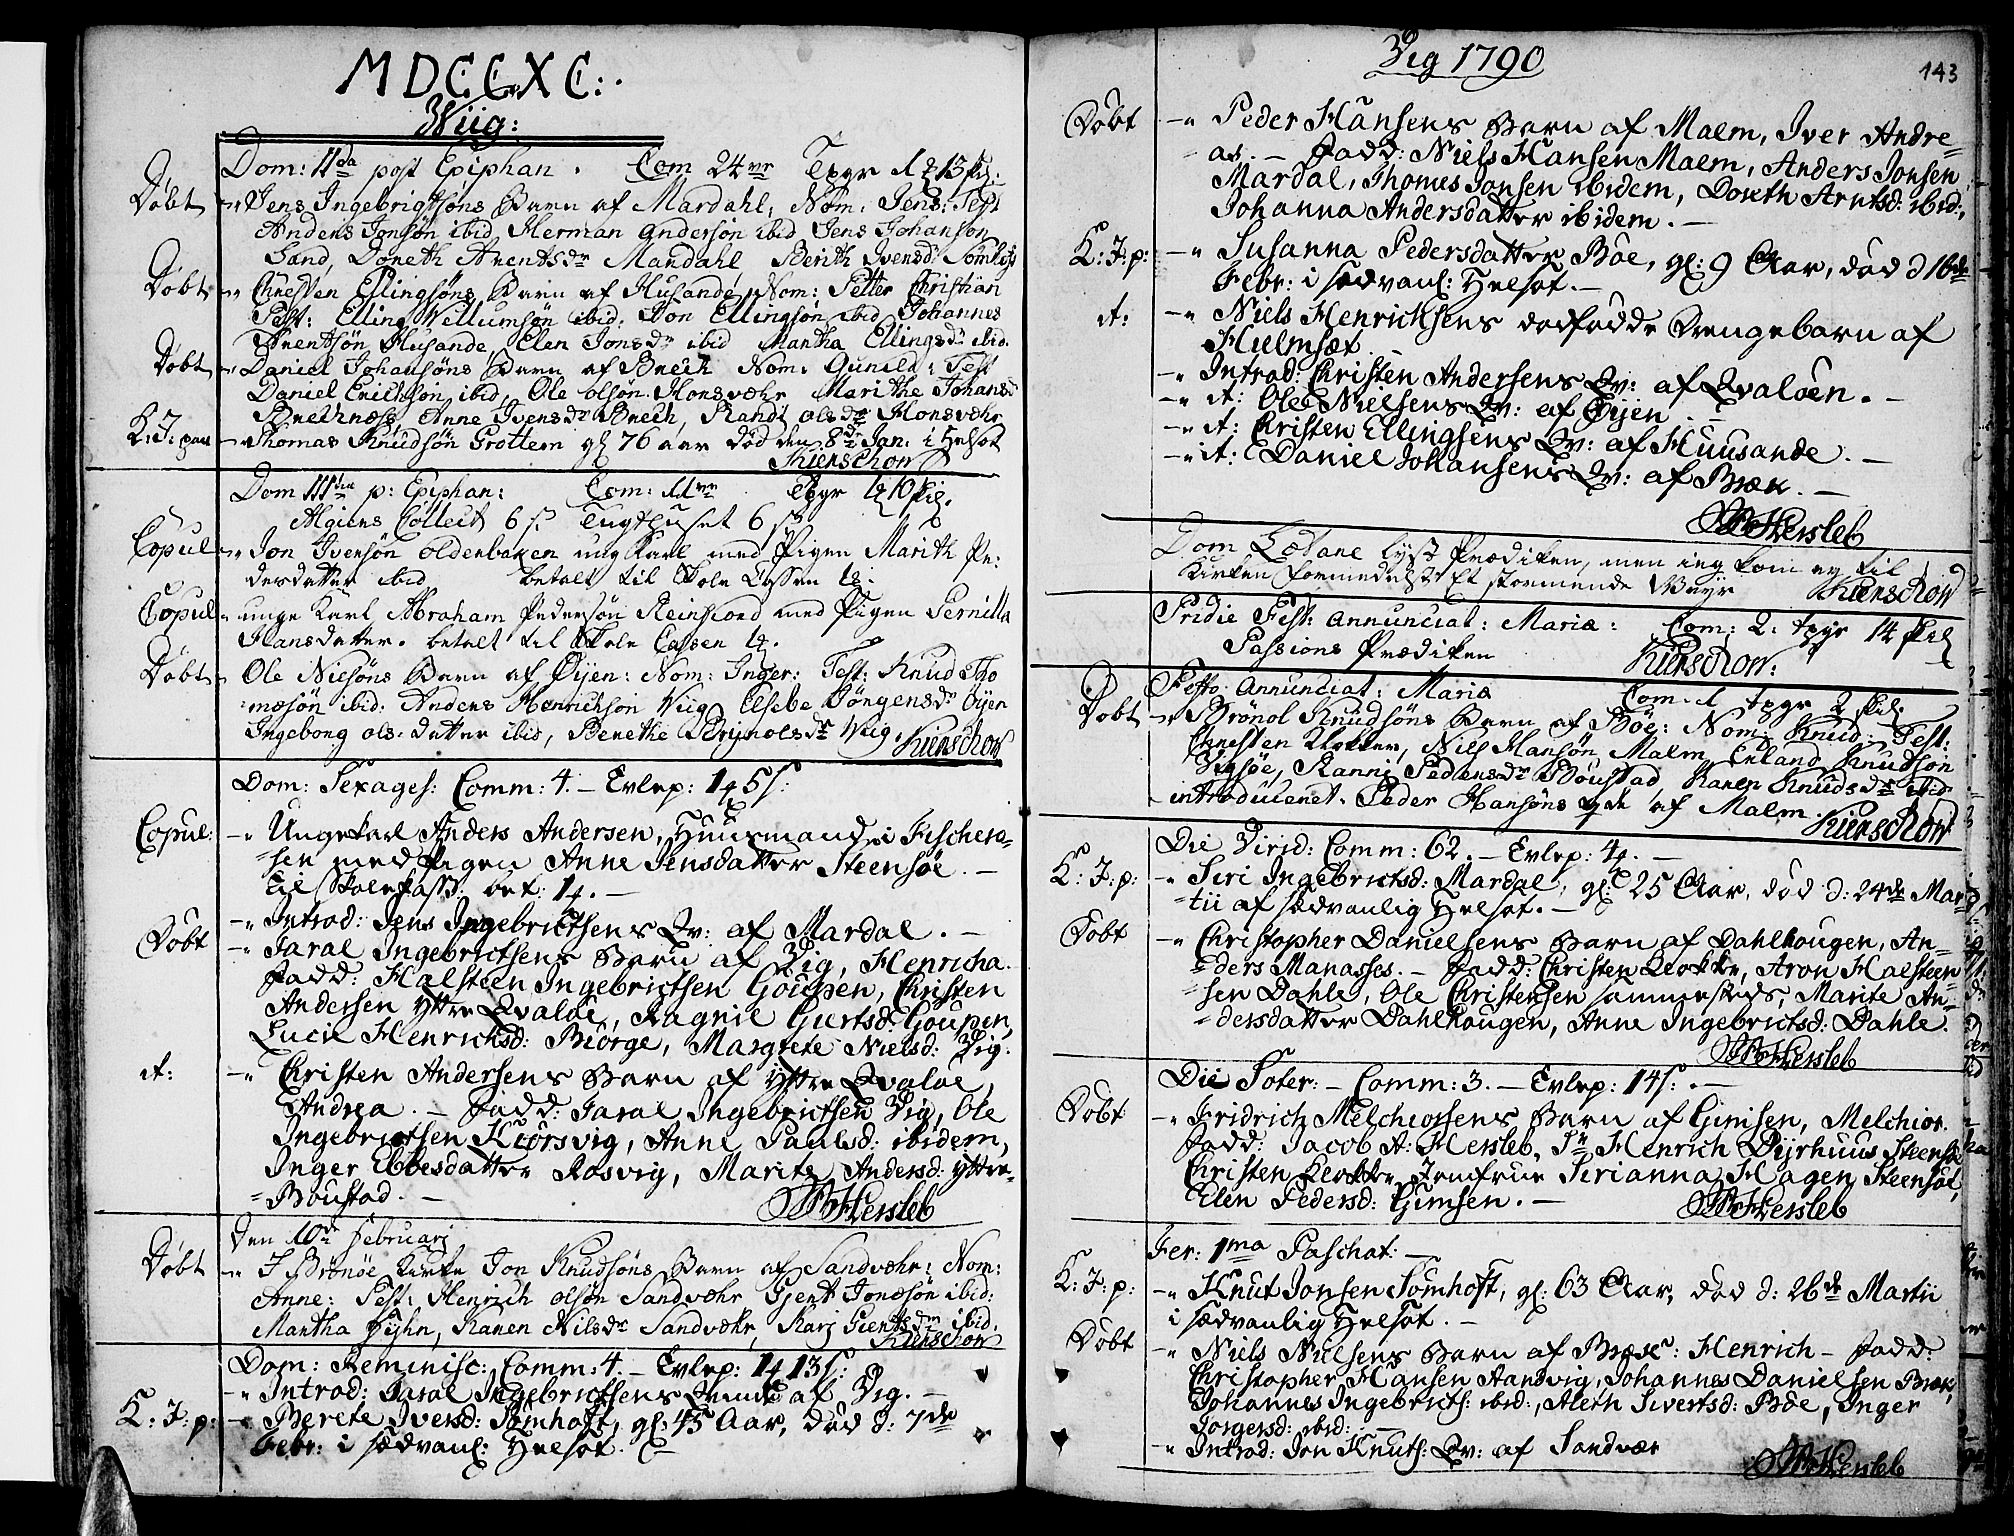 MDCCXC:.
Wiig:
Dom: 11da post Epiphan. Com 24 Tvgr 13 skil:
Døbt Jens Ingebrigtsøns Barn af Mardahl, Nom: Jens: Test
Anders Jonsøn ibid, Herman Andersøn ibid Jens Johanson
Sand, Doreth Arentsdr Mardahl, Berith Ivensd: Somhofft
Døbt Christen Ellingsøns Barn af Husande, Nom: Petter Christian
Test: Elling Villumsøn ibid. Jon Ellingsøn ibid Johannes
Arentsøn Husande, Elen Jonsdr ibid Martha Ellingsdr ibid.
Døbt Daniel Johansøns Barn af Brech Nom: Gunild: Test
Daniel Erichsøn ibid, Ole olsøn Honsvæhr Marithe Johansd
Brechnæss, Anne Ivensdr Brech, Randi olsdr Honsvæhr
K: J: paa Thomas Knudsøn Trottern gl 76 aar død den 8de Jan: i Helsot
Kierschow
Dom 111tia p: Epiphan: Com: 11 Tvgr 10 skil.
Algiens Collect 6 s Tugthuset 6 s
Copul Jon Ivensøn oldenbaken ung Karl med Pigen Marith Pe:
dersdatter ibid betalt til Skole Cassen
Copul unge Karl Abraham Pedersøn Reinfiord med Pigen Pernilla
Hansdatter. betalt til Skole Cassen
Døbt Ole Nielsøns Barn af Øÿen: Nom: Inger: Test: Knud Tho
masøn ibid: Anders Henrichsøn Viig Elsebe Jörgensdr Øÿen
Ingeborg ols: datter ibid, Berethe Brynolsdr Viig. Kierschow
Dom: Sexages: Comm: 4. – Evlrp: 1 5 s:
Copul: Ungekarl Anders Andersen, Huusmand i Fischera=
=sen med Pigen Anne Jensdatter Steensøe. –
til Skolekass: bet: 1. –
Introd: Jens Ingebrictsens Qv: af Mardal. –
Døbt Jaral Ingebrictsens Barn af Vig, Henricha.
Fadd: Halsteen Ingebrictsen Goupen, Christen
Andersen Yttre Qvaløe, Ragnil Gurtsd: Goupen,
Lucie Henrichsd: Biörge, Margrete Nielsd: Vig.
it: Christen Andersens Barn af Yttre Qvaløe,
Andrea. – Fadd: Jaral Ingebrictsen Vig, Ole
Ingebrictsen Kiörsvig, Anne Paulsd: ibidem,
Inger Ebbesdatter Rosvig, Marite Andersd: Yttre=
=Boustad. – Hersleb
Den 10de Februarj
Døbt I Brönöe Kirke Jon Knudsøns Barn af Sandvæhr: Nom:
Anne: Test: Henrich olsøn Sandvæhr Gjert Jonasøn ibid:
Martha Fÿhn, Karen Nilsdr Sandvæhr, Karj Gientsdr ibid.
Kierschow
Dom: Reminisc: Comm: 4. – Evlrp: 1 13 s:
Introd: Jaral Ingebrictsens Qvinde af Vig. –
K: J: p: Berete Iversd: Somhoft, gl: 45 Aar, död d: 7de
Febr: i sædvanl: Helsot. –
Vig 1790
143
Döbt Peder Hansens Barn af Malm, Iver Andre=
=as. – Fadd: Niels Hansen Malm, Anders Jonsen
Mardal, Thomes Jonsen ibidem, Doreth Arntsd: ibid:,
Johanna Andersdatter ibidem. –
K: J: p: Susanna Pedersdatter Böe, gl: 9 Aar, död d 16de
Febr: i sædvanl: Helsot. –
it: Niels Henricksens dödfödde Drengebarn af
Hielmsæt
Introd: Christen Andersens Qv: af Qvalöen. –
it: Ole Nielsens Qv: af Öyen –
it: Christen Ellingsens Qv: af Huusande. –
it: Daniel Johansens Qv: af Bræk. –
Hersleb
Dom Lætare lyst Prædiken, men ieg kom ey til
Kirken formedelst Et stormende Veyr Kierschow
Pridie Fest: Annunciat: Mariæ: Com: 2: tvgr 14 skil
Passions Prædiken Kierschow:
Festo. Annunciat: Mariæ Com: 1 tvgr 2 skil
Døbt Brönol Knudsøns Barn af Böe: Nom: Knud: Test:
Christen Klokker, Niels Hansøn Malm Erland Knudsøn
Vegsöe, Ranni Pedersdr Boustad, Karen Knudsdr ibid
introduceret. Peder Hansøns qde af Malm. Kierschow
Die Virid: Comm: 62. – Evlrp: 4. –
K: J: p: Siri Ingebrictsd: Mardal, gl: 25 Aar, död d: 24de Mar=
tii af sædvanlig Helsot. –
Döbt Christopher Danielsens Barn af Dahlhougen, An=
=ders Manasses. – Fadd: Christen Klokke, Aron Halsteen=
=sen Dahle, Ole Christensen sammesteds, Marite An=
=dersdatter Dahlhougen, Anne Ingebrictsd: Dahle.
Hersleb
Die Soter: – Comm: 3. – Evlrp: 14 s: –
Döbt Fridrich Melchiorsens Barn af Gimsen, Melchior.
Fadd: Jacob A: Hersleb, Sr Henrich Dÿrhuus Steensøe
Christen Klokker, Jomfrue Sirianna Hagen Steensöe,
Elen Pedersd: Gimsen. – Hersleb
Fer: 1ma Paschat: –
K: J: p: Knut Jonsen Somhoft, gl: 63 Aar, död d: 26de Martii
i sædvanlig Helsot. –
Döbt Niels Nielsens Barn af Bræk: Henrich – Fadd:
Christopher Hansen Aandvig, Johannes Danielsen Bræk,
Johannes Ingebricts: ibid:, Aleth Sivertsd: Böe, Inger
Jorgersd: ibid: –
Introd: Jon Knuts: Qv: af Sandvær
Hersleb